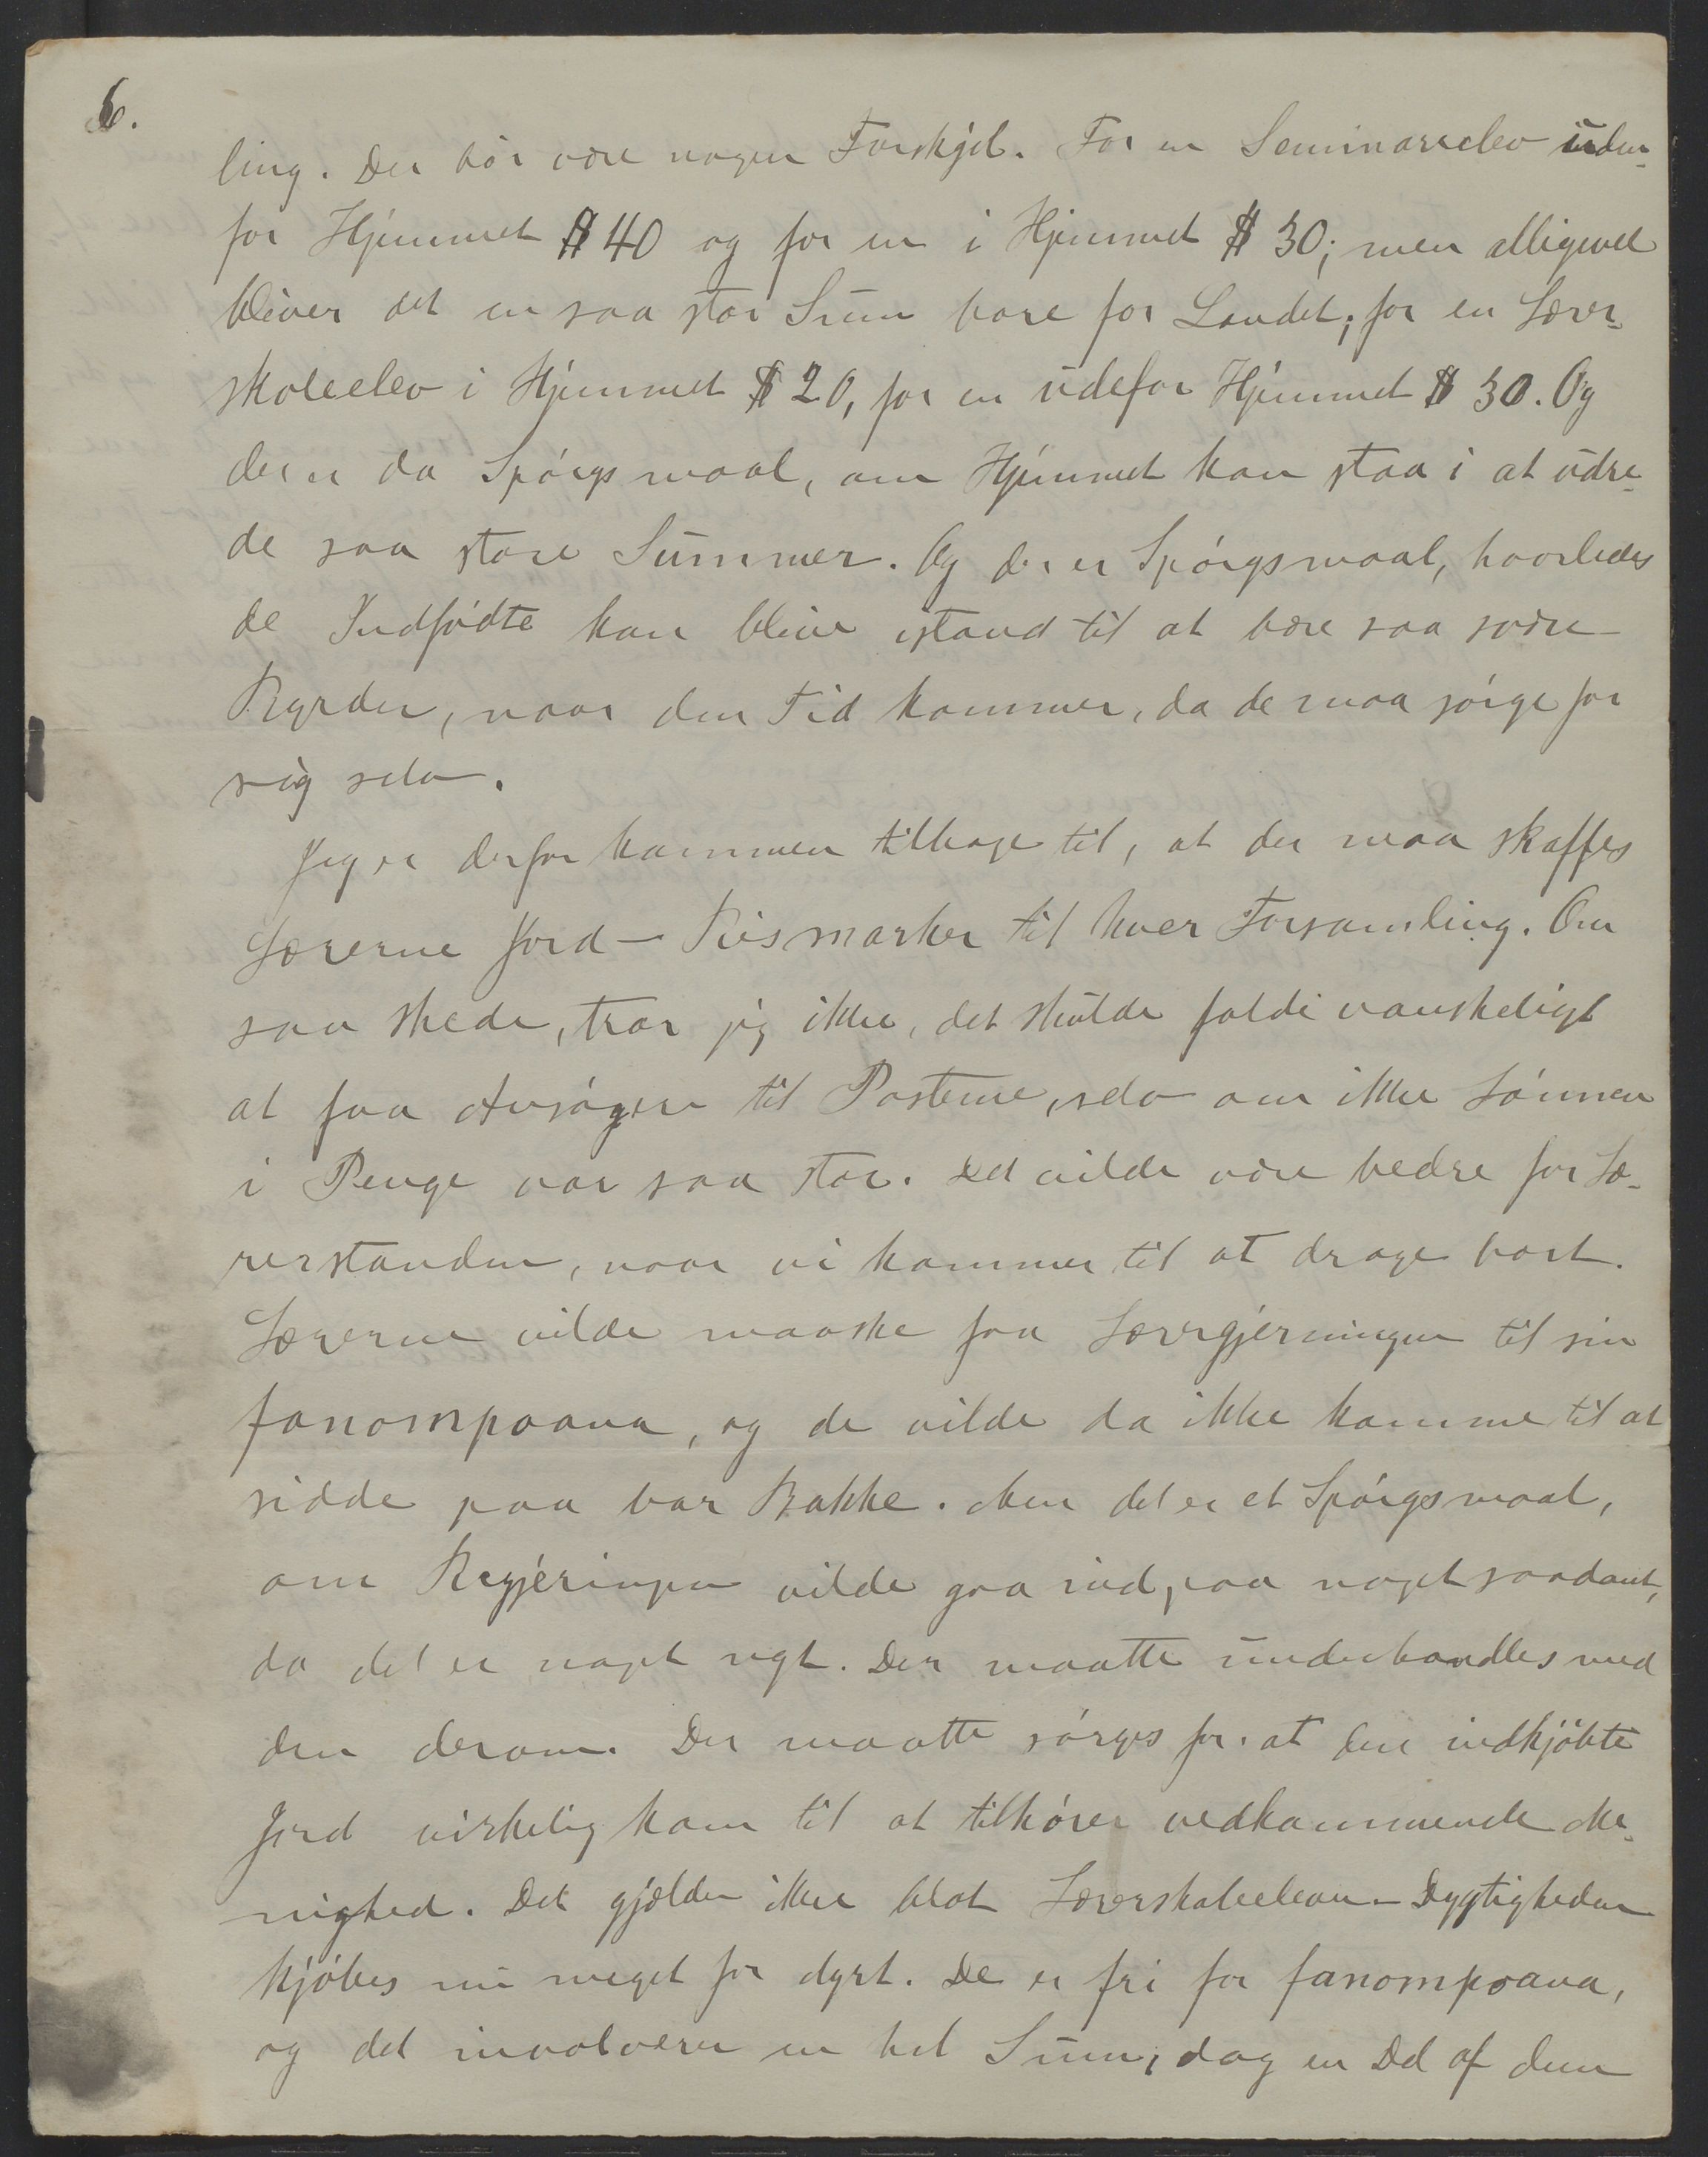 6.
ling. Der bør være nogen Forskjel. For en Seminarelev uden-
for Hjemmet $ 40 og for en i Hjemmet $ 30; men alligevel
bliver det en saa stor Sum bare for Landet; for en Lærer-
skoleelev i Hjemmet $ 20, for en udefor Hjemmet $ 30. Og
der er da Spørgsmaal, om Hjemmet kan staa i at udre-
de saa store Summer. Og der er Spørgsmaal, hvorledes
de Indfødte kan blive istand til at bære saa svære
Byrder, naar den Tid kommer, da de maa sørge for
sig selv.
Jeg er derfor kommen tilbage til, at der maa skaffes
Lærerne Jord - Rismarker til hver Forsamling. Om
saa skede, tror jeg ikke, det skulde falde vanskeligt
at faa Ansøgere til Posterne, selv om ikke Lønnen
i Penge var saa stor. Det vilde være bedre for Læ-
rerstanden, naar vi kommer til at drage bort.
Lærerne vilde maaske faa Lærergjerningen til sin
fanompoana, og de vilde da ikke komme til at
sidde paa bar Bakke. Men det er et Spørgsmaal,
om Regjeringen vilde gaa ind paa noget saadant,
da det er noget nyt. Der maatte underhandles med
den derom. Der maatte sørges for at den indkjøbte
Jord virkelig kom til at tilhøre vedkommende Me-
nighed. Det gjælder ikke blot Lærerskoleeleven - Dygtigheden
kjøbes nu meget for dyrt. De er fri for fanompoana,
og det involverer en hel Sum, dog en Del af dem